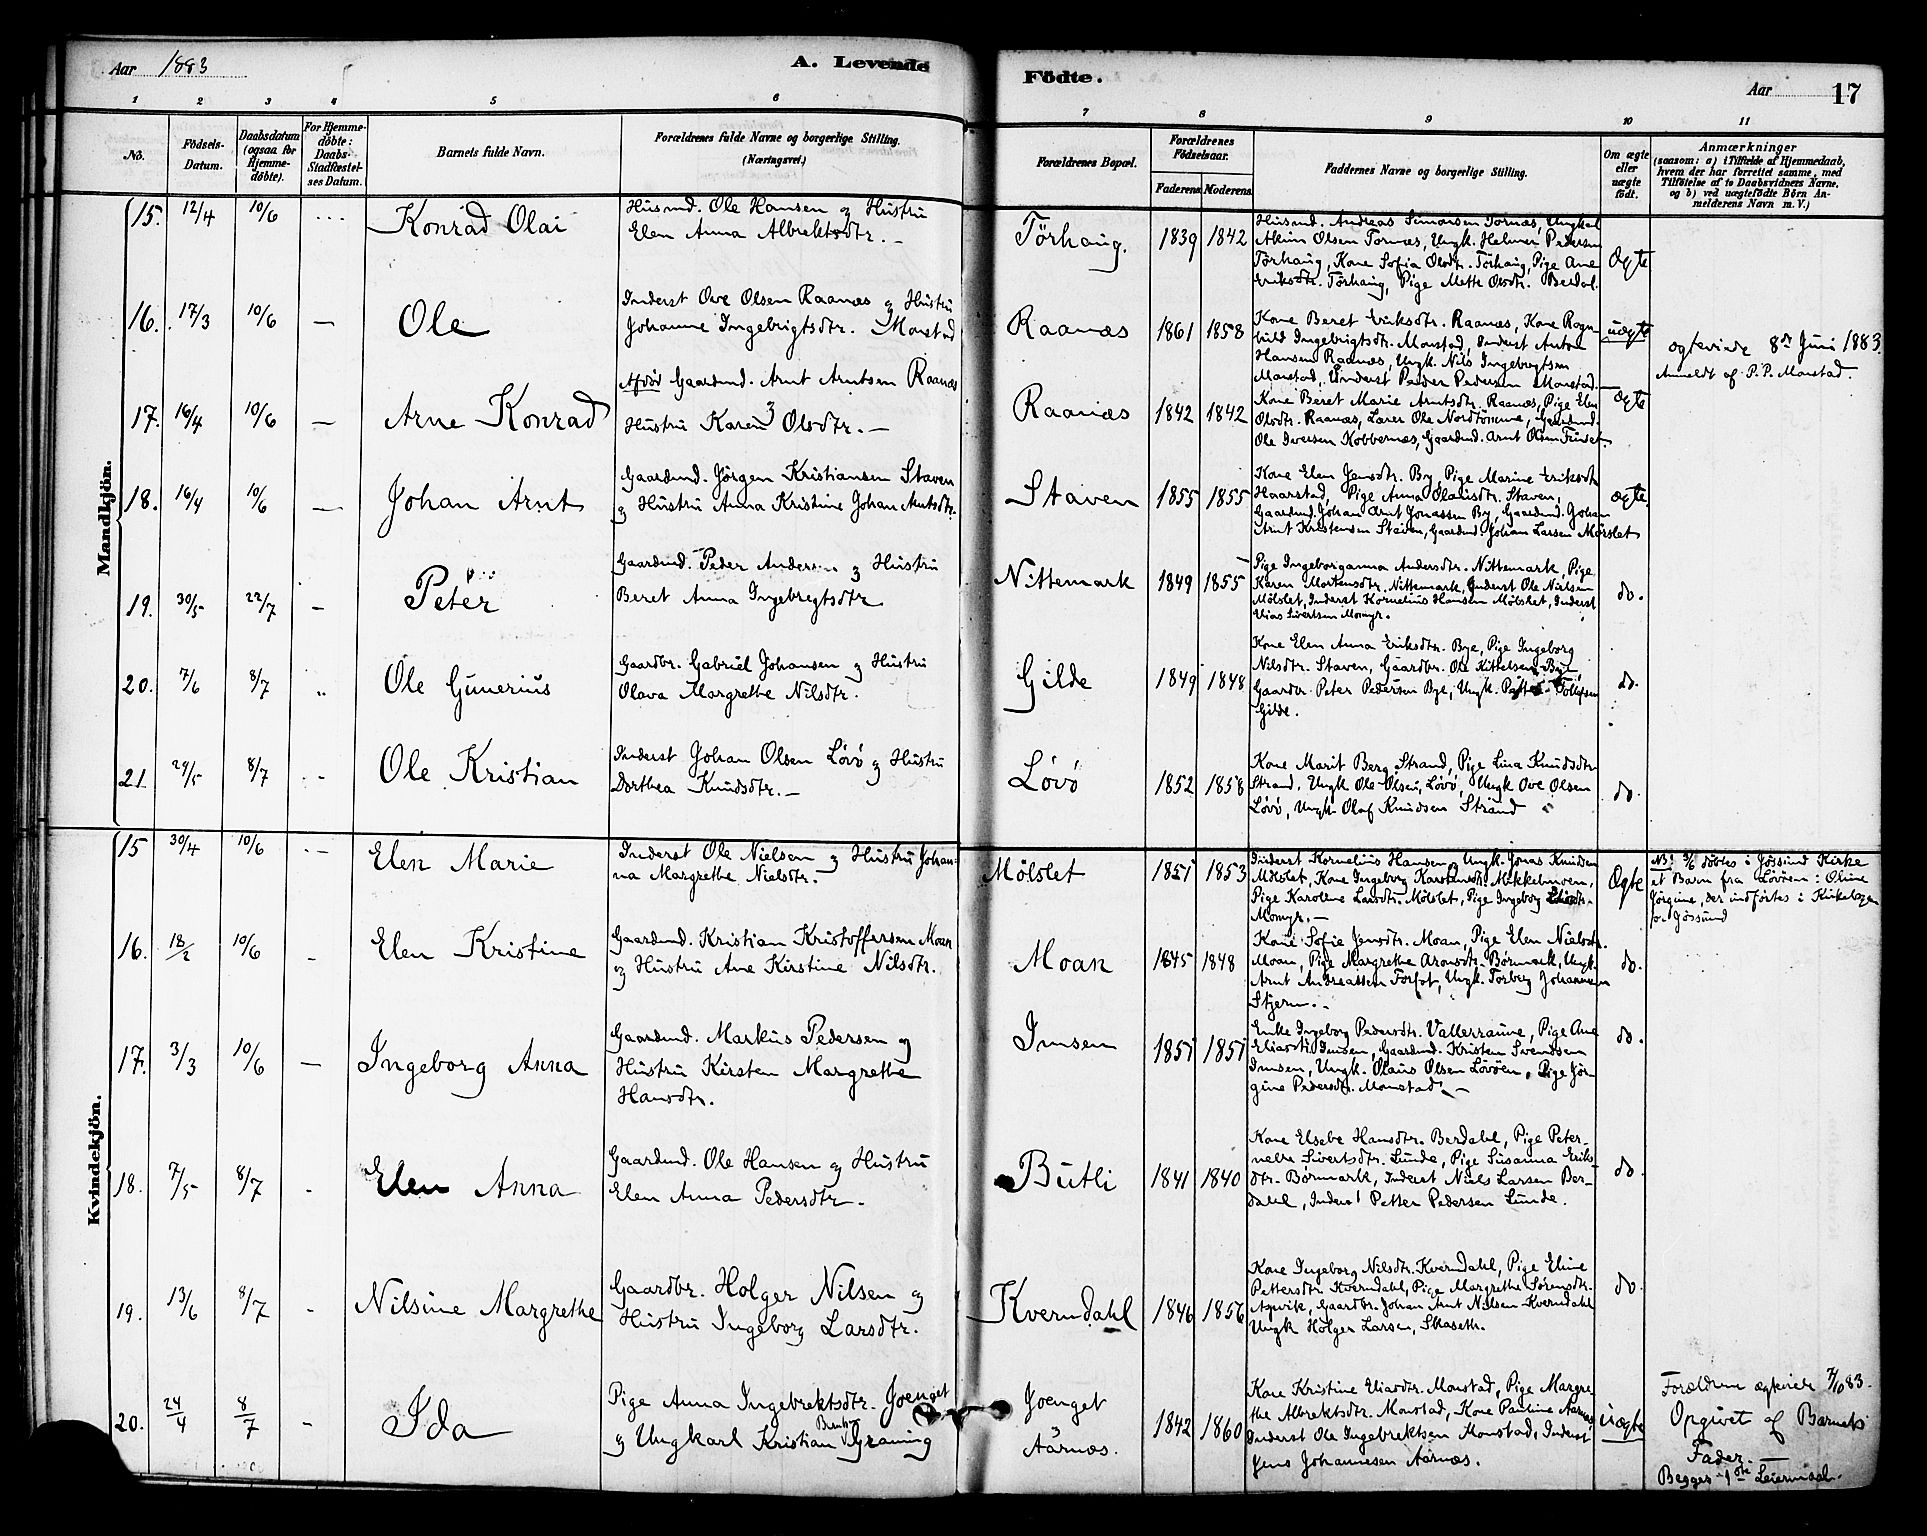 Aar 1883
A. Levende Födte.
Aar 17
1 2 3 4 5 6 7 8 9 10 11
No.
Födsels-Datum.
Daabsdatum (ogsaa for Hjemme-döbte).
For Hjemme-döbte: Daabs-Stadfæstel-ses Datum.
Barnets fulde Navn.
Forældrenes fulde Navne og borgerlige Stilling.
(Næringsvei.)
Forældrenes Bopæl.
Forældrenes Födselsaar.
Faderens. Moderens.
Faddernes Navne og borgerlige Stilling.
Om ægte eller uægte födt.
Anmærkninger
(saasom: a) i Tilfælde af Hjemmedaab,
hvem der har forrettet samme, med
Tilföielse af to Daabsvidners Navne,
og b) ved uægtefödte Börn An-
melderens Navn m. V.)
Mandkjön.
15. 12/4 10/6 Konrad Olai
Husmd. Ole Hansen og Hustru
Elen Anna Albrektsdtr. —
Törhaug. 1839 1842
Husmd. Andreas Simonsen Tornæs, Ungkarl
Akim Olsen Tornæs, Ungk. Helmer Pedersen
Törhaug, Kone Sofia Olsdtr. Törhaug, Pige Ane
Eriksdtr. Törhaug, Pige Mette Olsdtr. Berdal.
Ægte
16. 17/3 10/6 — Ole
Inderst Ove Olsen Raanæs og Hustru
Johanne Ingebrigtsdtr. Monstad
Raanæs 1861 1858
Kone Beret Eriksdtr. Raanæs, Kone Ragn-
hild Ingebrigtsdtr. Monstad, Inderst Anton
Hansen Raanæs, Ungk. Nils Ingebrigtsen
Monstad, Inderst Peder Pedersen Monstad.
uægte
ægteviede 8de Juni 1883.
Anmeldt af P. P. Monstad.
17. 16/4 10/6 — Arne Konrad
Afdød Gaardmd. Arnt Arntsen Raanæs
Hustru Karen Olsdtr. —
Raanæs 1842 1842
Kone Beret Marie Arntsdtr. Raanæs, Pige Elen
Olsdtr. Raanæs, Lærer Ole Nordtömme, Gaardmd.
Ole Iversen Kobbernæs, Gaardmd. Arnt Olsen
ægte
18. 16/4 10/6 — Johan Arnt
Gaardmd. Jörgen Kristiansen Staven
og Hustru Anna Kristine Johan Arntsdtr.
Staven 1855 1855
Kone Elen Jensdtr. By, Pige Marine Eriksdtr
Haarstad, Pige Anna Olausdtr. Staven,
Gaardmd. Johan Arnt Jonassen By, Gaardmd. Johan
Arnt Kristensen Staven, Gaardmd. Johan Larsen Mölslet
ægte
19. 30/5 22/7 — Peter
Gaardmd. Peder Andersen og Hustru
Beret Anna Ingebregtsdtr
Nittemark 1849 1855
Pige Ingeboranna Andersdtr. Nittemark, Pige
Karen Mortensdtr. Nittemark, Inderst Ole Nielsen
Mölslet, Inderst Kornelius Hansen Mölslet, Inderst
Elias Sivertsen Momyr.
do.
20. 7/6 8/7 „ Ole Gunerius
Gaardbr. Gabriel Johansen og Hustru
Olava Margrethe Nilsdtr.
Gilde 1849 1848
Kone Elen Anna Eriksdtr. Bye, Pige Ingeborg
Nilsdtr. Staven, Gaardbr. Ole Kittelsen Bye,
Gaardbr Peter Pedersen Bye, Ungk.
Gilde.
do.
21 29/5 8/7 Ole Kristian
Inderst Johan Olsen Lövö og Hustru
Dorthea Knudsdtr. —
Lövö 1852 1858
Kone Marit Berg Strand, Pige Lina Knudsdtr
Strand, Ungk Ole Olsen, Lövö, Ungk Ove Olsen
Lövö, Ungk Olaf Knudsen Strand
do.
Kvindekjön.
15 30/4 10/6 Elen Marie
Inderst Ole Nielsen og Hustru Johan-
na Margrethe Nielsdtr.
Mölslet 1851 1853
Inderst Kornelius Hansen, Ungk. Jonas Knudsen
Mölslet, Kone Ingeborg Karstensdtr. Mekkelmoen,
Pige Karoline Larsdtr. Mölslet, Pige Ingeborg
Momyr. —
Ægte
NB! 3/6 döbtes i Jössund Kirke
et Barn fra Lövöen: Oline
Jörgine, der indförtes i Kirkebogen
for Jössund
16. 18/2 10/6 Elen Kristine
Gaardmd. Kristian Kristoffersen Moan
og Hustru Ane Kirstine Nilsdtr.
Moan 1845 1848
Kone Sofie Jensdtr. Moan, Pige Elen Nielsdtr.
Moan, Pige Margrethe Aronsdtr. Börmark, Ungk.
Arnt Andreassen Forfot, Ungk. Torberg Johannesen
Stjern. —
do.
17. 3/3 10/6 — Ingeborg Anna
Gaardmd. Markus Pedersen og
Hustru Kirsten Margrethe
Hansdtr.
Imsen 1851 1851
Enke Ingeborg Pedersdtr. Vallersaune, Pige Ane
Eliasdtr. Imsen, Gaardmd. Kristen Svendsen
Imsen, Ungk. Olaus Olsen Lövöen, Pige Jör-
gine Pedersdtr. Monstad. —
do.
18. 7/5 8/7 Elen Anna
Gaardmd. Ole Hansen og Hustru
Elen Anna Pedersdtr.
Butli 1841 1840
Kone Elsebe Hansdtr. Berdahl, Pige Peter-
nelle Sivertsdtr. Lunde, Pige Susanna Eriks-
dtr. Börmark, Inderst Niels Larsen Ber-
dahl, Inderst Petter Pedersen Lunde.
do.
19. 13/6 8/7 Nilsine Margrethe
Gaardbr. Holger Nilsen og
Hustru Ingeborg Larsdtr.
Kverndahl 1846 1856
Kone Ingeborg Nilsdtr. Kverndahl, Pige Eline
Pettersdtr Kverndahl, Pige Margrethe Sörensdtr.
Aspvik, Gaardbr. Johan Arnt Nilsen Kverndahl
Ungk Holger Larsen, Skaseth.
do.
20. 24/4 8/7 Ida
Pige Anna Ingebrektsdtr. Joenget
og Ungkarl Kristian Bentz Graning
Joenget
Aarnæs. 1842 1860
Kone Kristine Eliasdtr. Monstad, Pige Margre
the Albrektsdtr. Monstad, Kone Pauline Aarnæs,
Inderst Ole Ingebrektsen Monstad, Inderst
Jens Johannesen Aarnæs.
uægte
Forældrene ægteviede 7/10 83.
Opgivet af Barnets
Fader.
Begges 1ste Leiermaal.